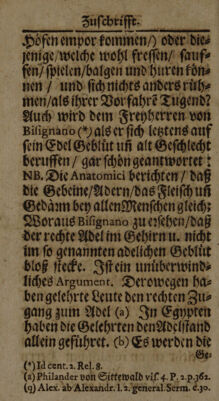 Zuschrifft.
Höfen empor kommen/) oder die-
jenige/welche wohl fressen/ sauf-
fen/spielen/balgen und huren kön-
nen / und sich nichts anders rüh-
men/als ihrer Vorfahrẽ Tugend?
Auch wird dem Freyherren von
Bisignano (*)als er sich letztens auf
sein Edel Geblüt uñ alt Geschlecht
beruffen/ gar schön geantwortet:
NB. Die Anatomici berichten/ daß
die Gebeine/Adern/das Fleisch uñ
Gedärm bey allen Menschen gleich:
Woraus Bisignano zu ersehen/daß
der rechte Adel im Gehirn u. nicht
im so genannten adelichen Geblüt
bloß stecke. Ist ein unüberwind-
liches Argument. Derowegen ha-
ben gelehrte Leute den rechten Zu-
gang zum Adel (a) In Egypten
haben die Gelehrten den Adelstand
allein geführet. (b) Es werden die
Ge-
(*) Id cent. 2. Rel. 8.
(a) Philander von Sittewald vis. 4. P. 2. p. 362.
(g) Alex. ab Alexandr. l. 2. general. Serm. c. 30.